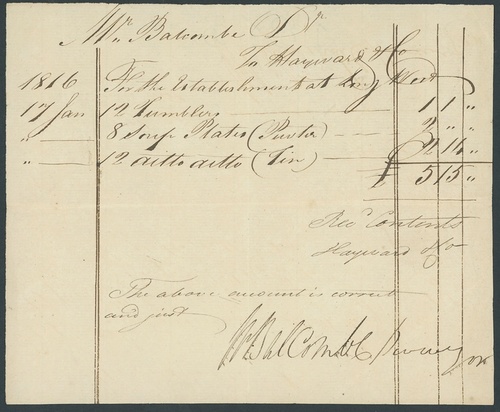 Mr. Balcombe Dr.
To Hayward & Co
1816 For the Establishment at Long Wood
17 Jan 12 Tumblers — 1 1 "
" — 8 Soup Plates (Pewter) — 2 " "
" — 12 ditto ditto (Tin) — 2 14 "
£ 5 15 "
Recd. Contents
Hayward & Co
The above account is correct
and just
Wm Balcombe Purveyor